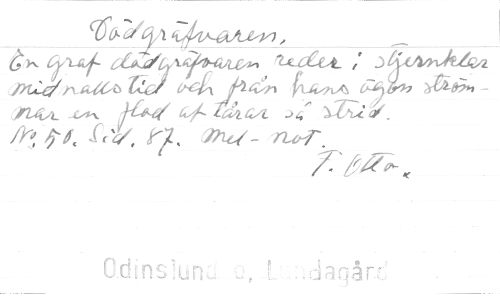 Dödgräfvaren.
En graf dödgräfvaren reder i stjernklar
midnattstid och från hans ögon ström-
mar en flod af tårar så strid.
No. 50. Sid. 87. Mel-not.
T. Otto.
Odinslund o, Lundagård